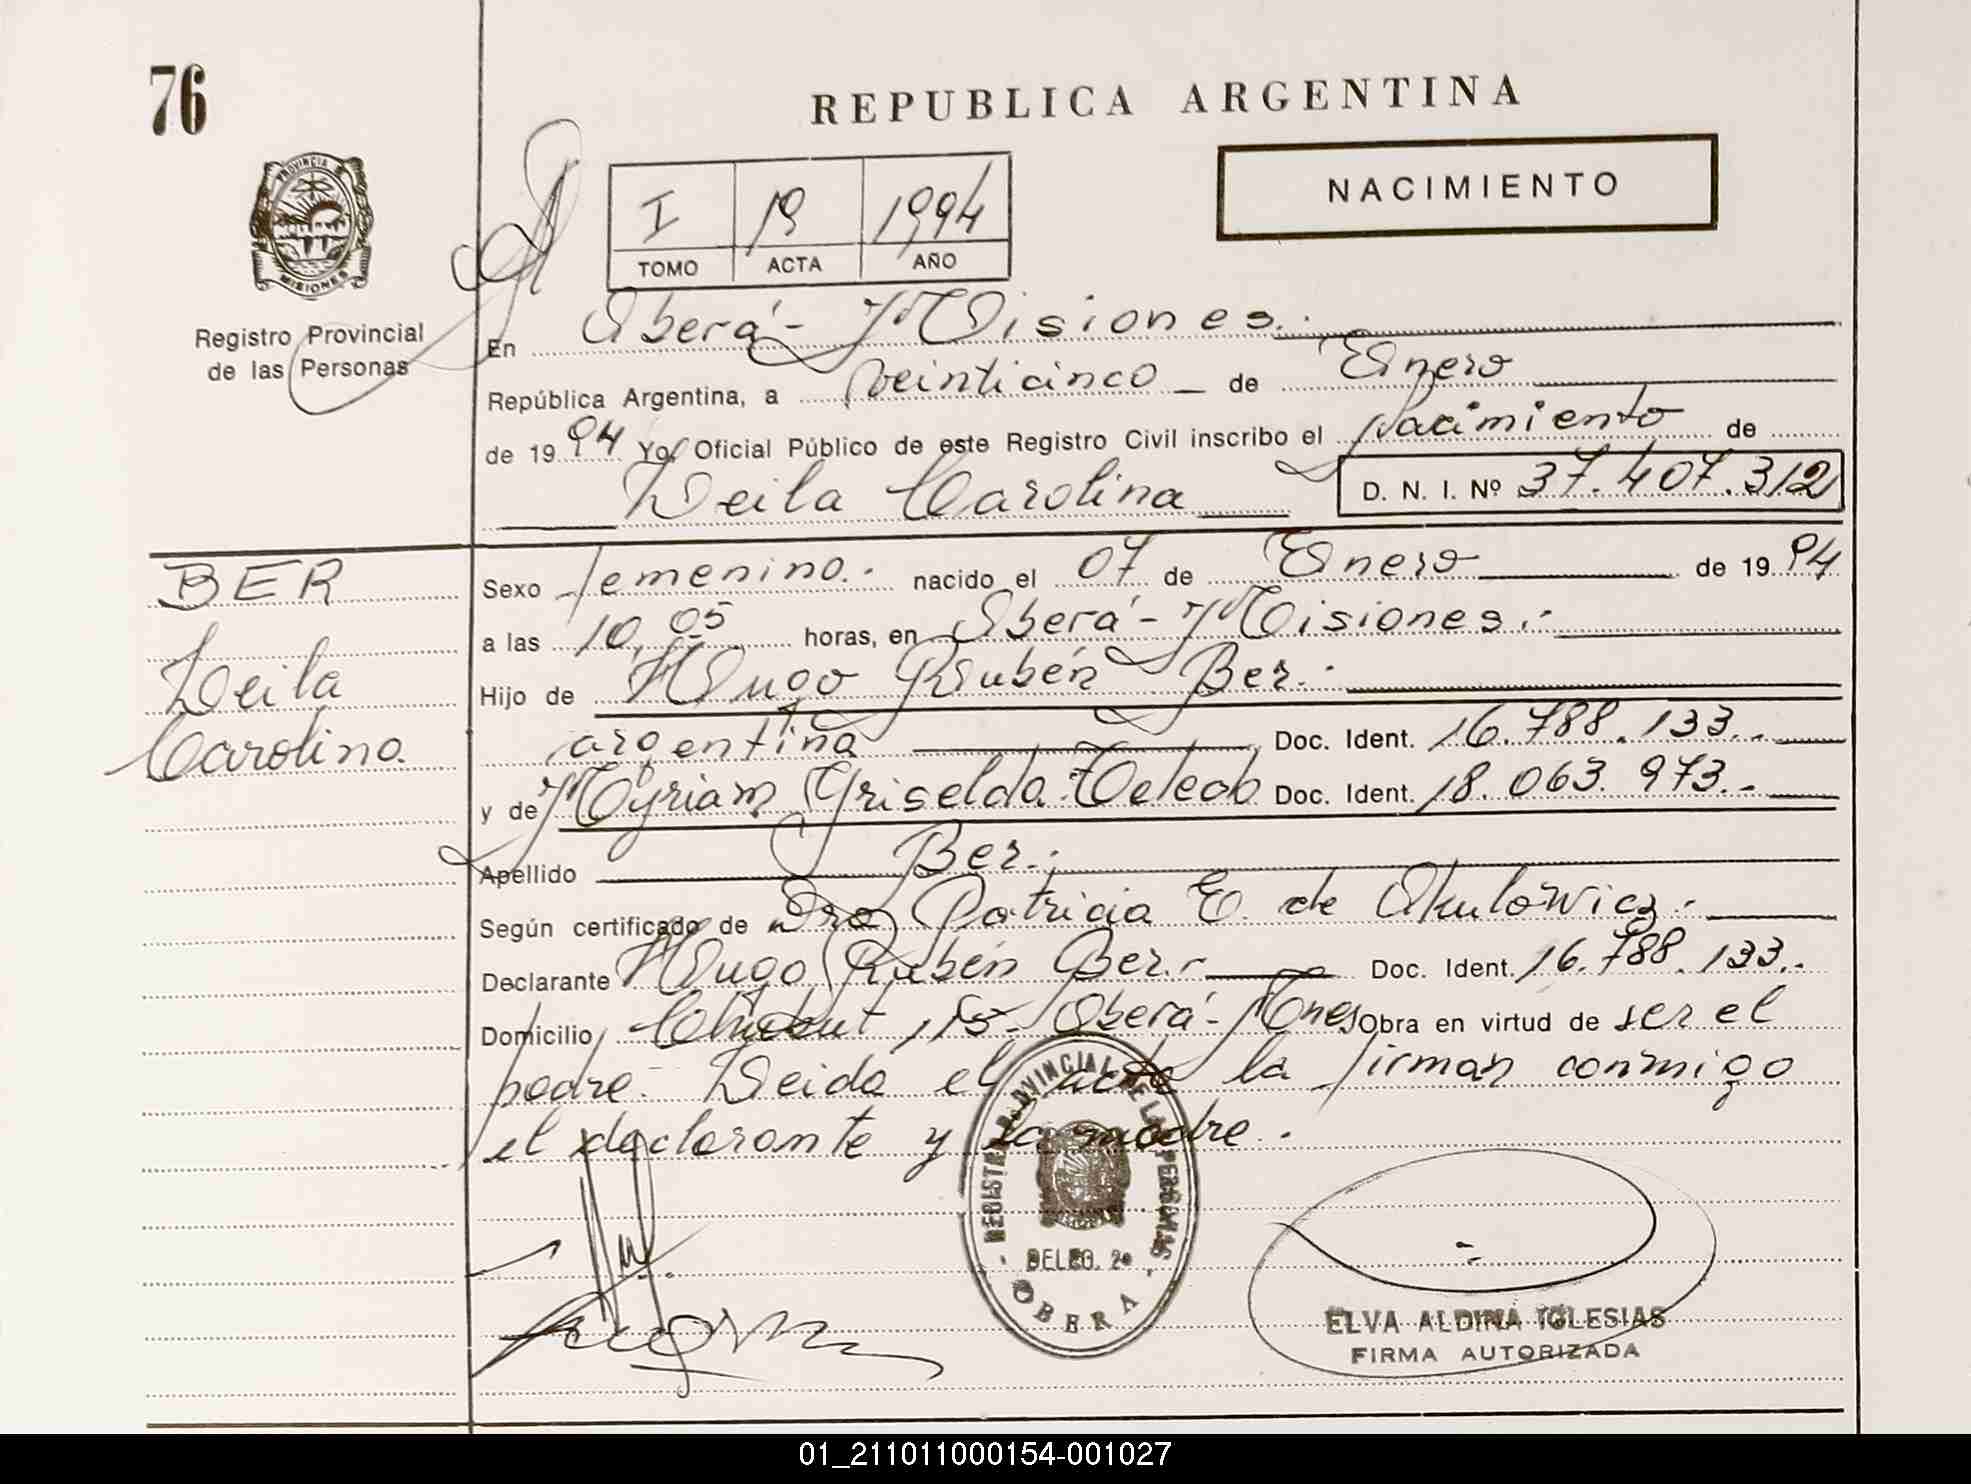 76
REPUBLICA ARGENTINA
NACIMIENTO
I 19 1994
TOMO ACTA AÑO
PROVINCIA
MISIONES
Registro Provincial
de las Personas
En Oberá - Misiones.
República Argentina, a veinticinco de Enero
de 1994 Yo, Oficial Público de este Registro Civil inscribo el Nacimiento de
Leila Carolina D. N. I. Nº 37.407.312
BER
Leila
Carolina.
Sexo femenino. nacido el 07 de Enero de 1994
a las 10,05 horas, en Oberá - Misiones.
Hijo de Hugo Rubén Ber.
argentina Doc. Ident. 16.788.133.
y de Myriam Griselda Doc. Ident. 18.063.973.
Apellido Ber.
Según certificado de Dra Patricia E. de Okulowicz.
Declarante Hugo Rubén Ber. Doc. Ident. 16.788.133.
Domicilio Chubut 115 - Oberá - Mnes Obra en virtud de ser el
padre. Leida el acta la firman conmigo
el declarante y la madre.
REGISTRO PROVINCIAL DE LAS PERSONAS
DELEG. 2ª
OBERA
ELVA ALDINA IGLESIAS
FIRMA AUTORIZADA
01_211011000154-001027